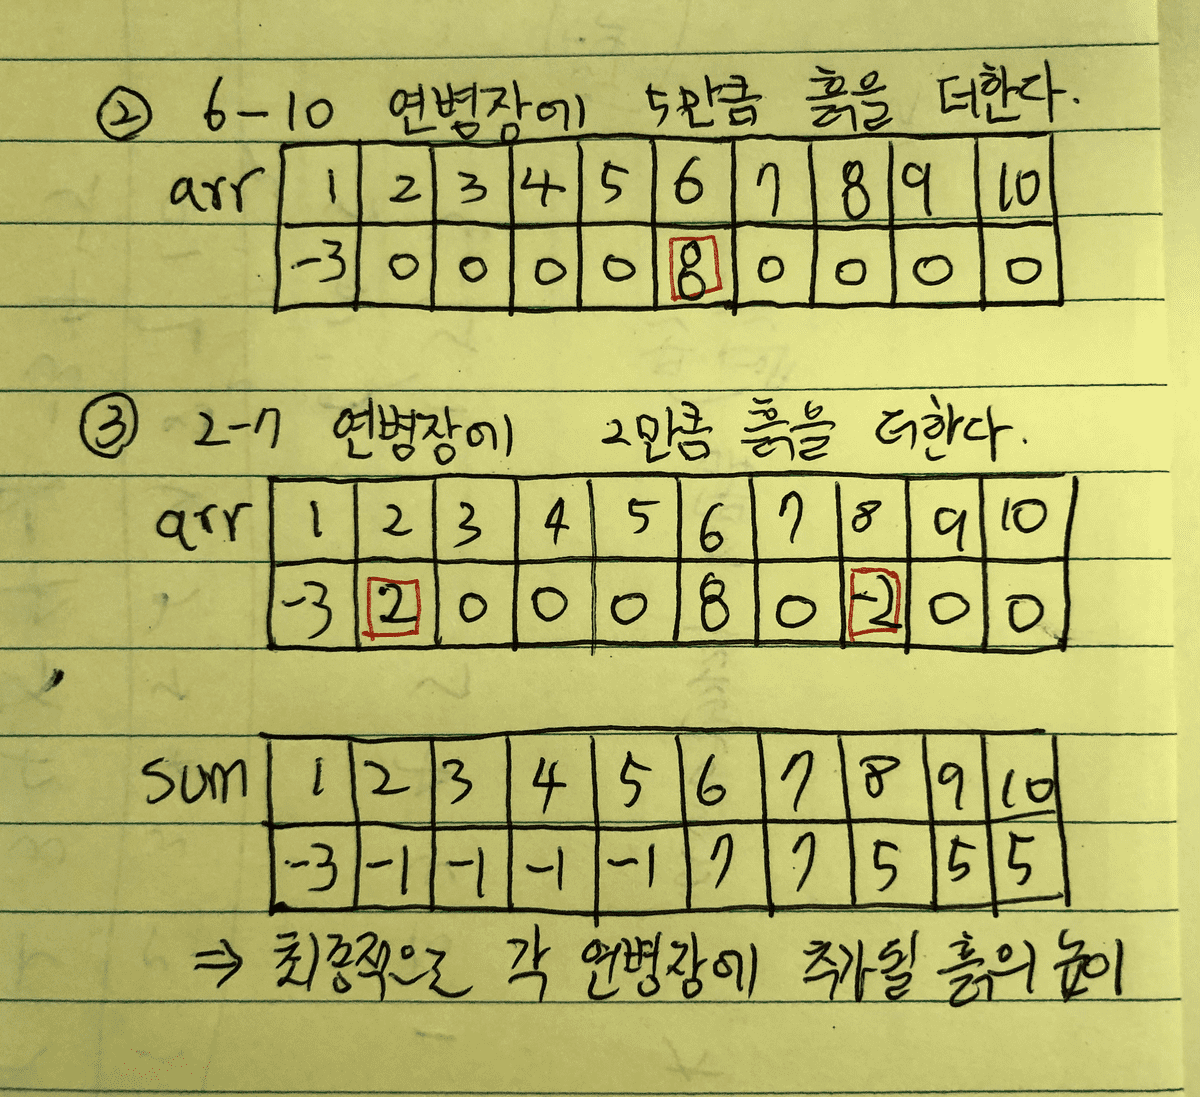 ② 6-10 연병장에 5만큼 흙을 더한다.
arr 1 2 3 4 5 6 7 8 9 10
-3 0 0 0 0 8 0 0 0 0
③ 2-7 연병장에 2만큼 흙을 더한다.
arr 1 2 3 4 5 6 7 8 9 10
-3 2 0 0 0 8 0 -2 0 0
sum 1 2 3 4 5 6 7 8 9 10
-3 -1 -1 -1 -1 7 7 5 5 5
⇒ 최종적으로 각 연병장에 추가될 흙의 높이